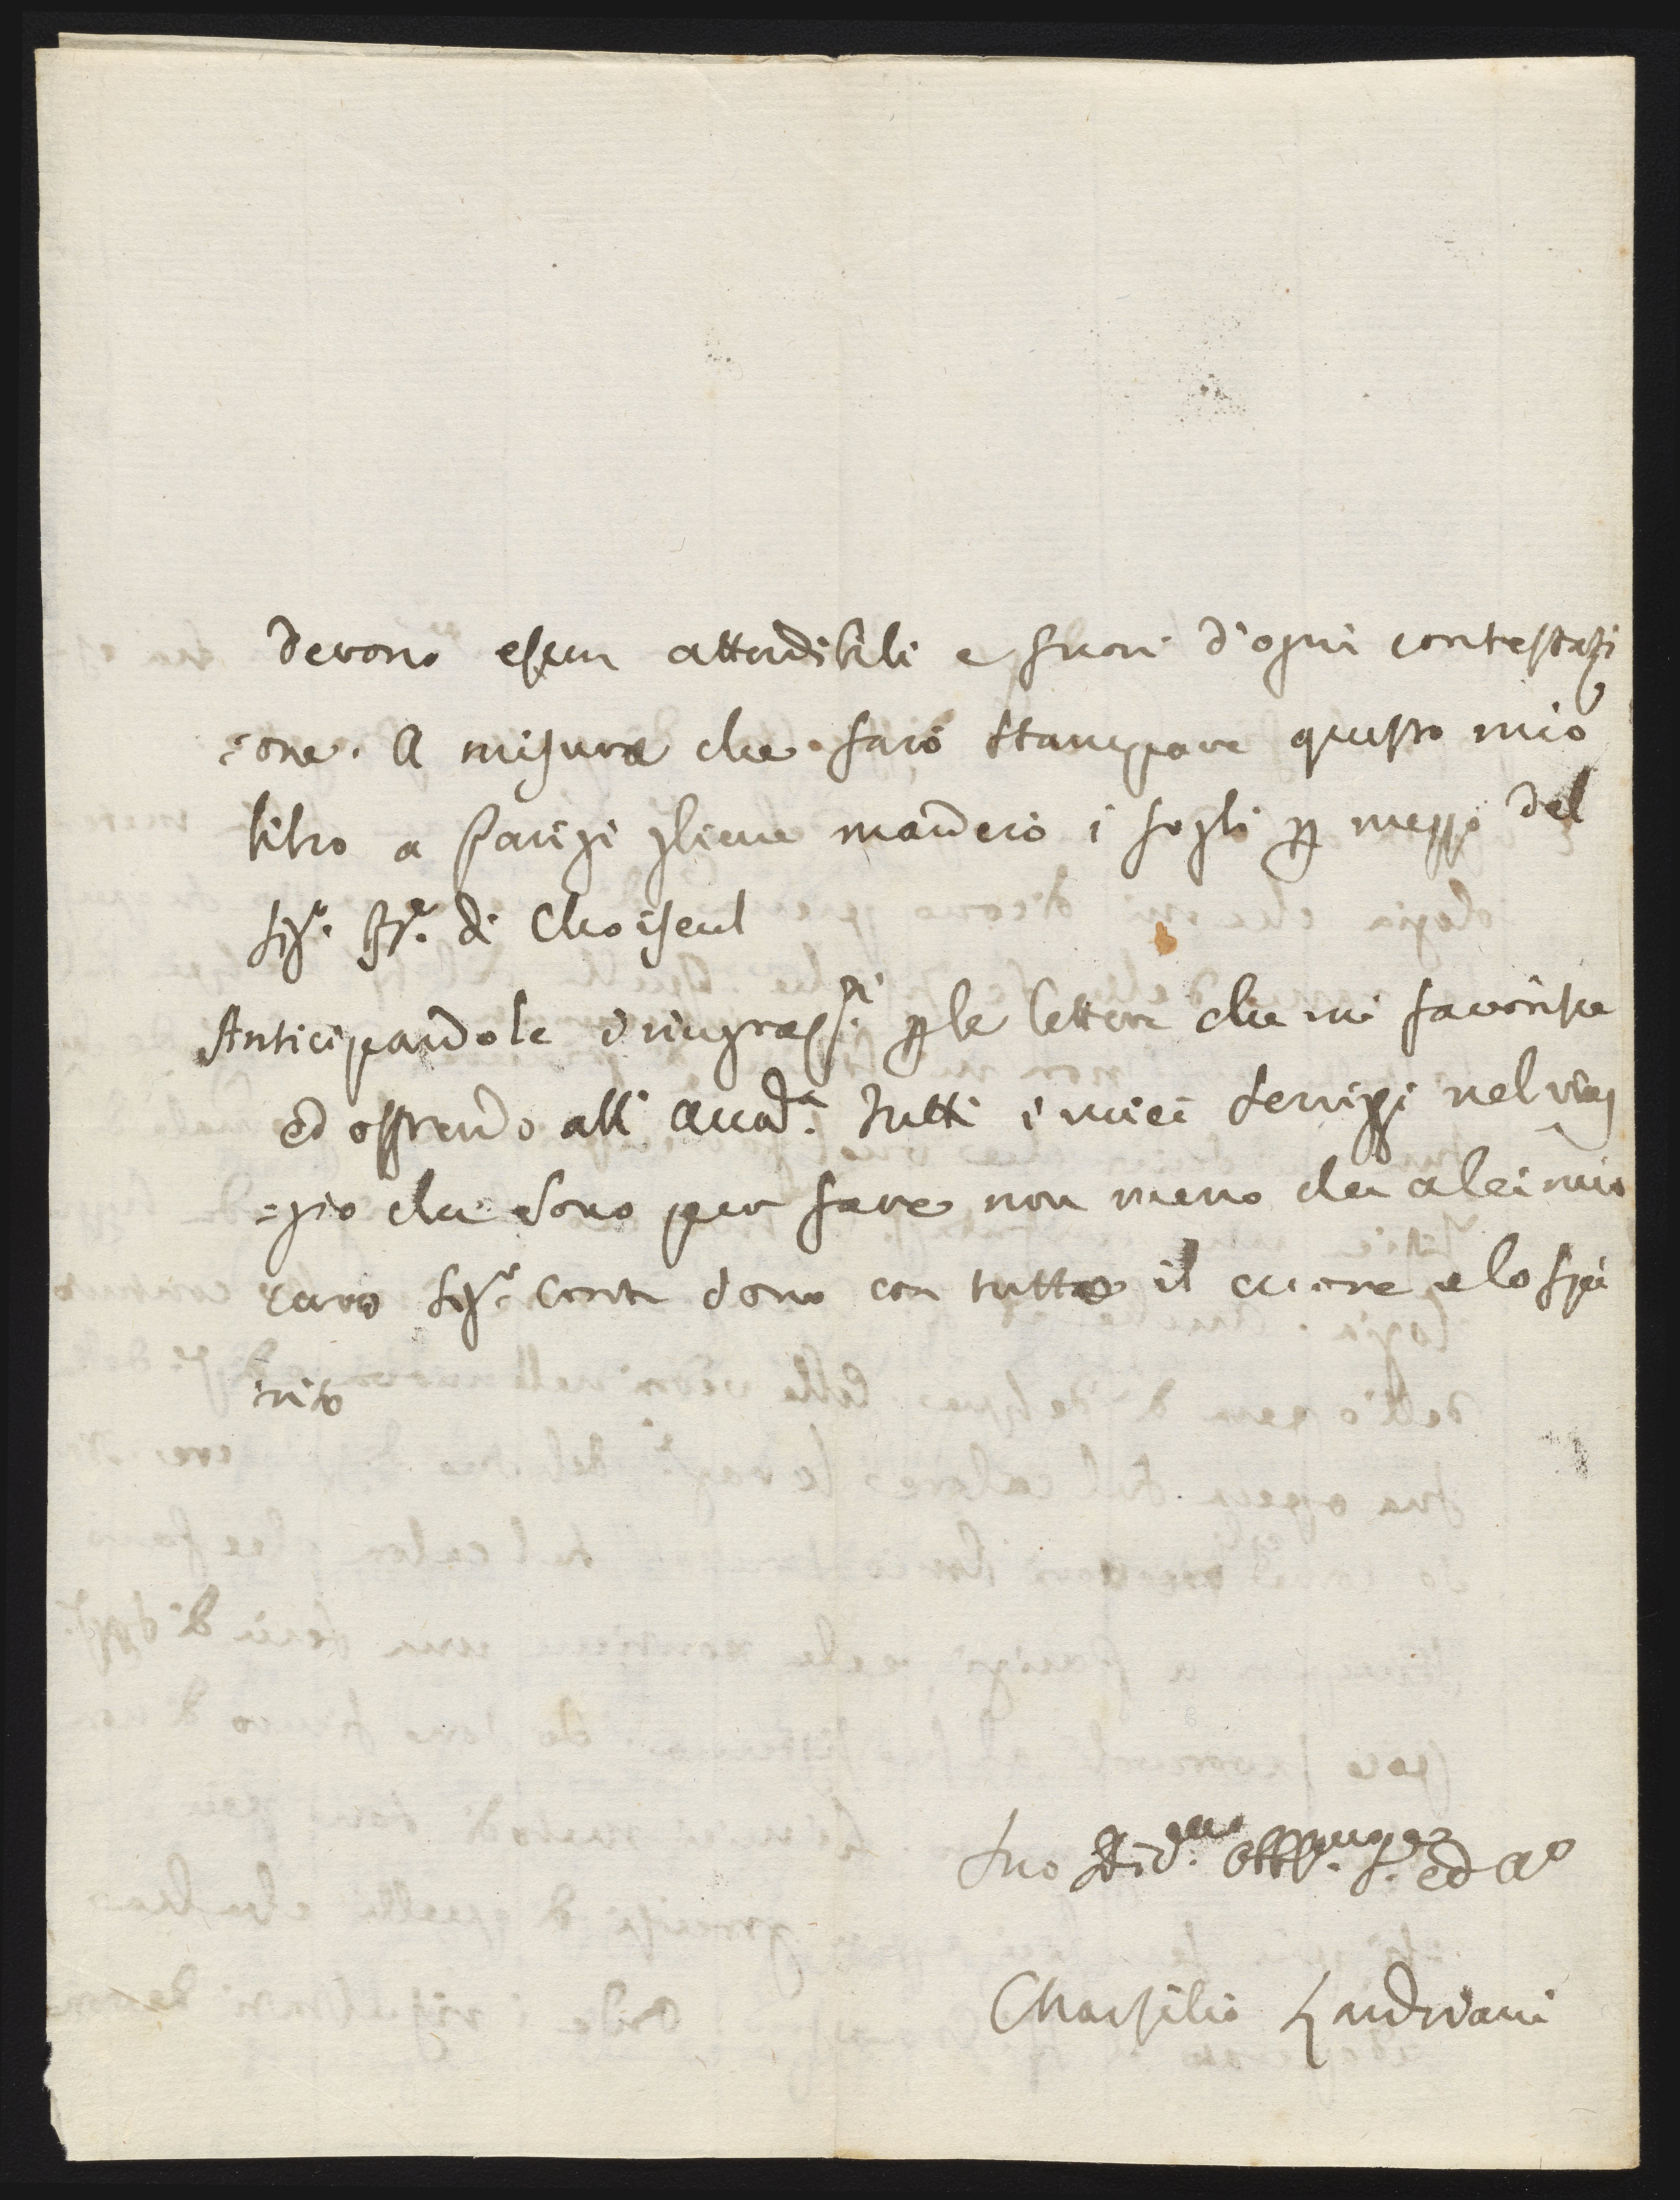 devono essere attendibili e fuori d'ogni contestazi
=one. A misura che farò stampare questo mio
libro a Parigi gliene manderò i fogli p mezzo del
Sigr. Br. di Choiseul
Anticipandole i ringrazti. p le lettere che mi favorisce
ed offrendo all' Accada. tutti i miei servizi nel viag
=gio che sono per fare non meno che a lei mio
caro Sigr. Conte sono con tutto il cuore e lo spi
rito
Suo Dvmo. Obblmo. Se. ed Ao
Marsilio Landriani